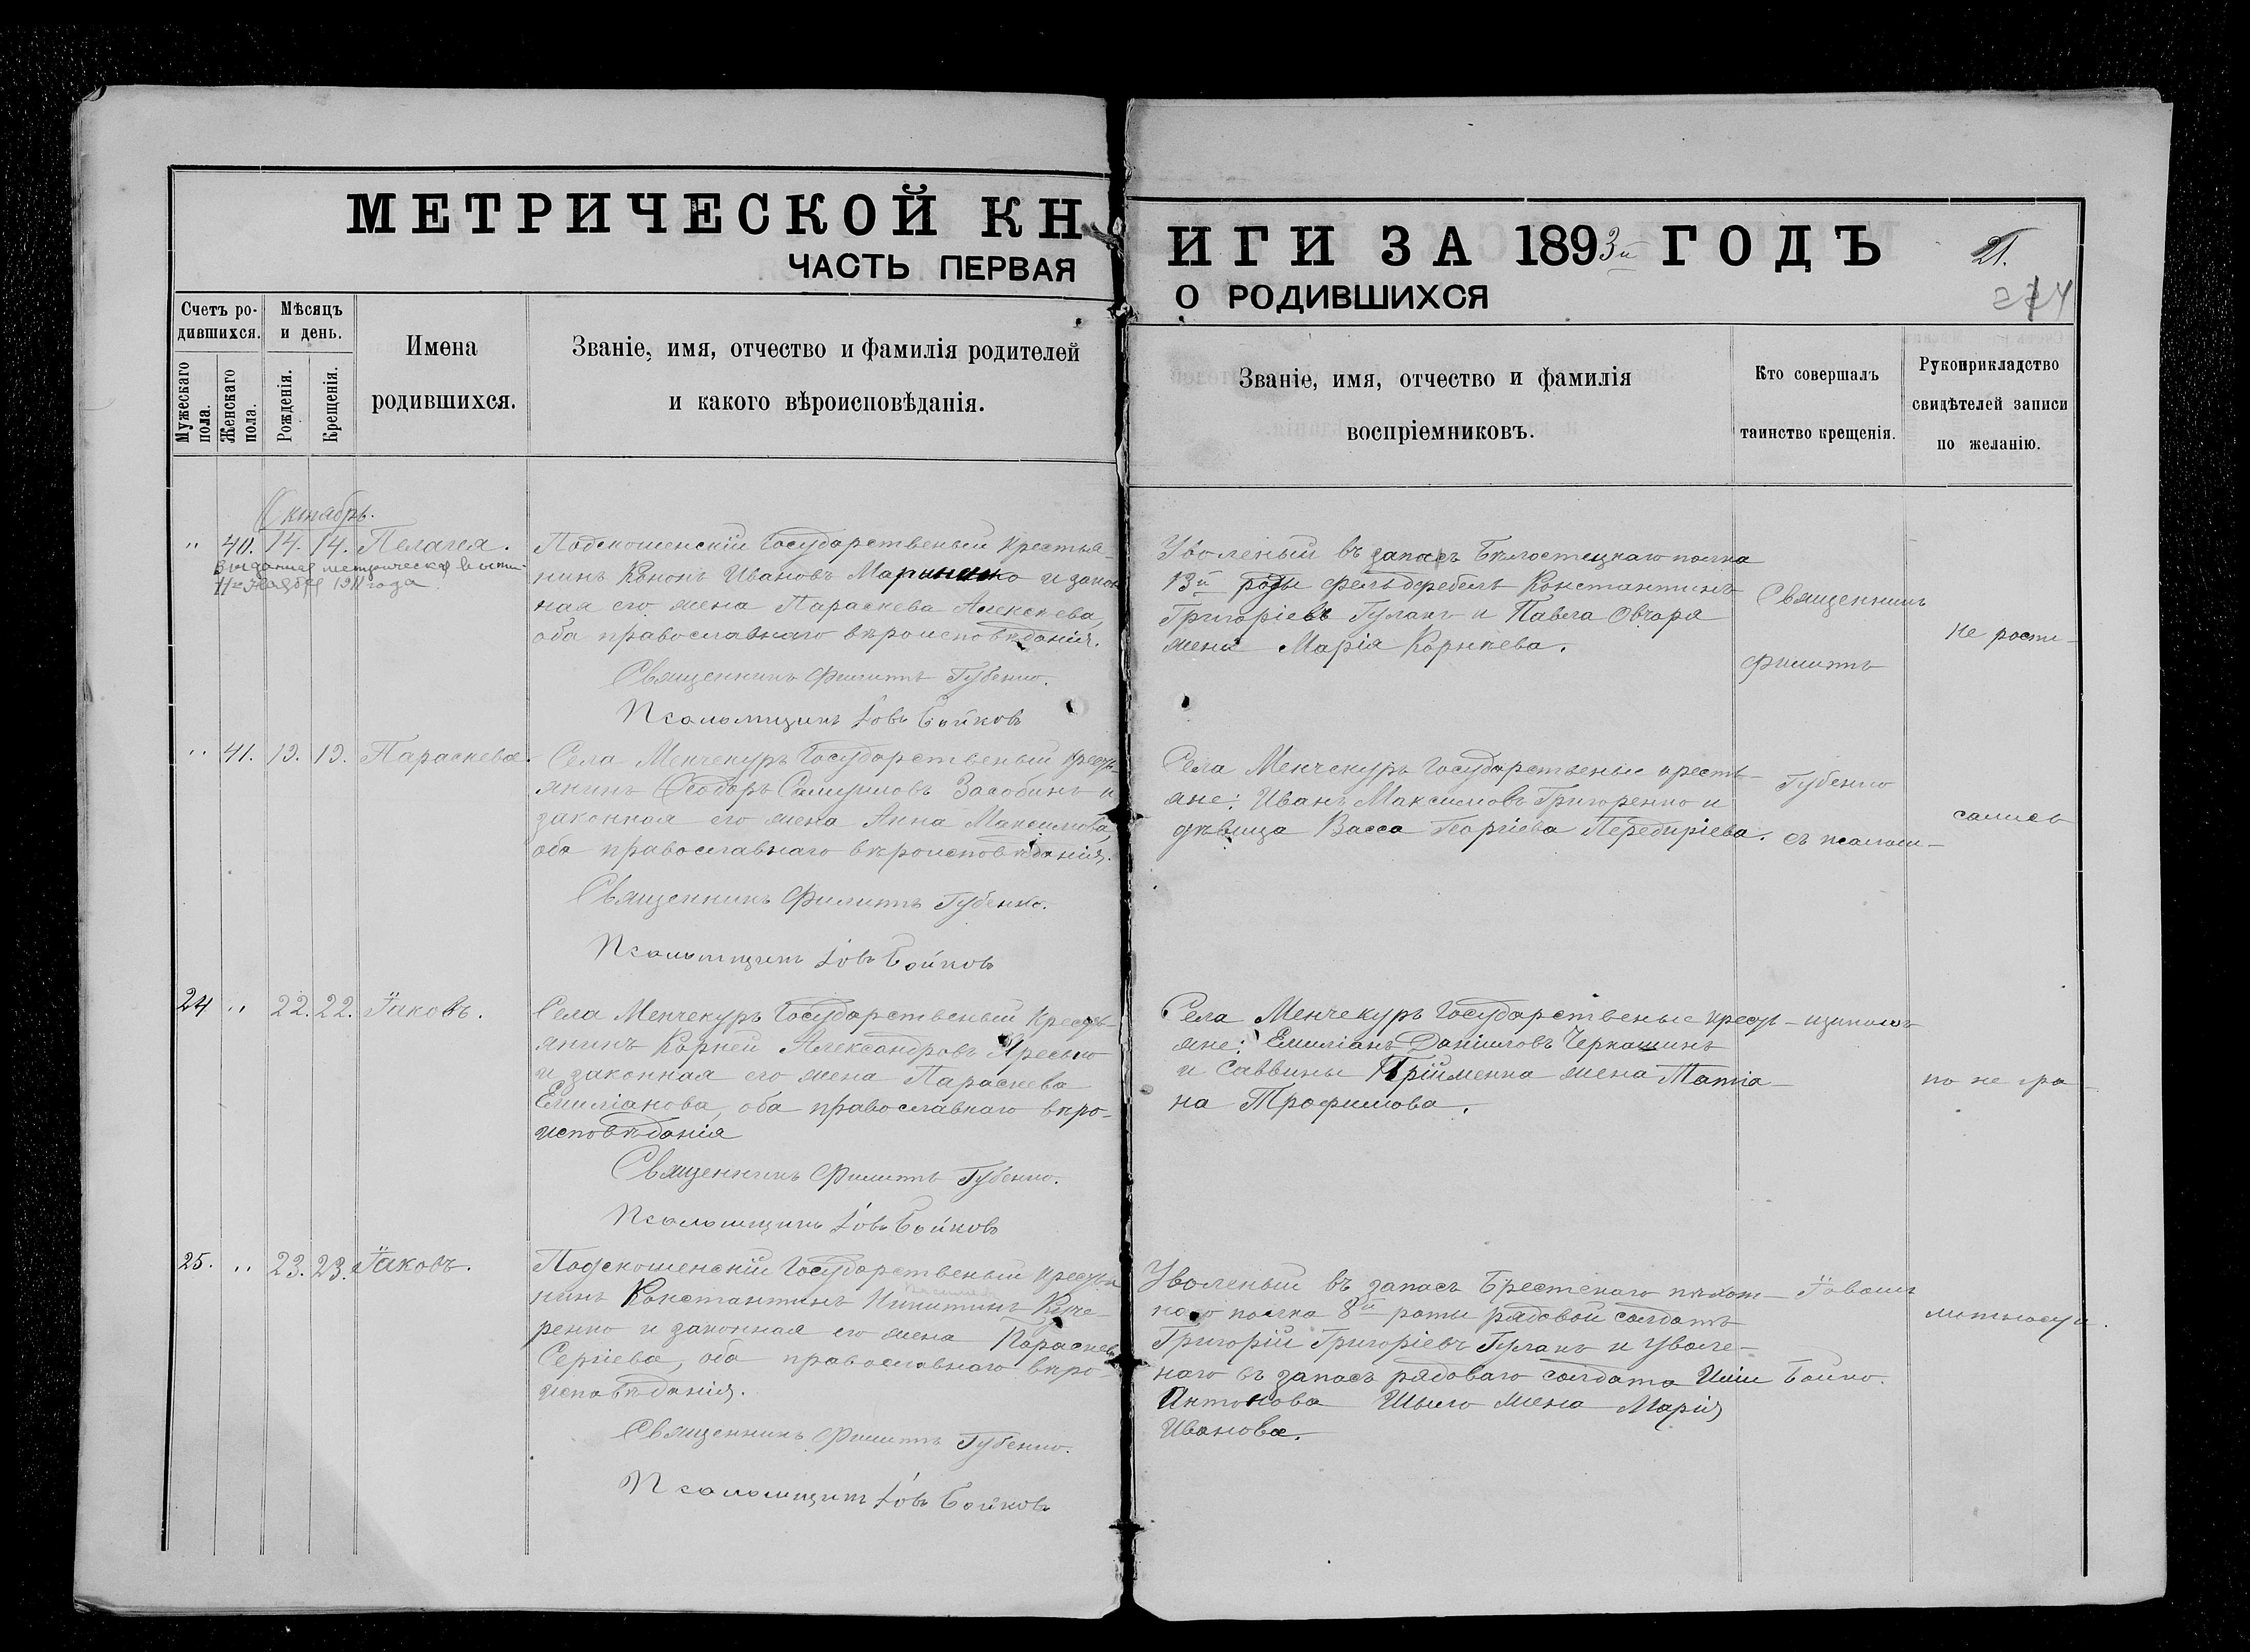 МЕТРИЧЕСКОЙ КНИГИ ЗА 1893й ГОДЪ
21.
274
ЧАСТЬ ПЕРВАЯ О РОДИВШИХСЯ
Счетъ ро-
дившихся.
Мужескаго пола.
Женскаго пола.
Мѣсяцъ
и день.
Рожденія.
Крещенія.
Имена
родившихся.
Званіе, имя, отчество и фамилія родителей
и какого вѣроисповѣданія.
Званіе, имя, отчество и фамилія
воспріемниковъ.
Кто совершалъ
таинство крещенія.
Рукоприкладство
свидѣтелей записи
по желанію.
Октябрь.
" 40. 14. 14. Пелагея.
11го 1911 года
Подскошенскій Государственый крестья-
нинъ Конон Ивановъ и закон
ная его жена Параскева Алексѣева,
оба православнаго вѣроисповѣданія.
Священникъ Филиппъ Губенко.
Псаломщикъ Іовъ Бойковъ
Уволеный въ запасъ Бѣлостецкаго полка
13й роты фельдфебель Константинъ
Григоріевъ Гулакъ и Павла Овчара
жена Марія Корнѣева.
" 41. 19. 19. Параскева.
Села Менчекуръ Государственый крест-
янинъ Ѳеодоръ Самуиловъ Засобинъ и
законная его жена Анна Максимова,
оба православнаго вѣроисповѣданія.
Священникъ Филиппъ Губенко.
Псаломщикъ Іовъ Бойковъ
Села Менчекуръ Государственые кресть-
яне: Иванъ Максимовъ Григоренко и
дѣвица Васса Георгіева Передиріева.
24 " 22. 22. Іаковъ.
Села Менчекуръ Государственый крест-
янинъ Корней Александровъ Яресько
и законная его жена Параскева
Емиліанова, оба православнаго вѣро-
исповѣданія
Священникъ Филиппъ Губенко.
Псаломщикъ Іовъ Бойковъ
Села Менчекуръ Государственые крест-
яне: Емиліанъ Даніиловъ Черкашинъ
и Саввины Пріименка жена Татіа-
на Трофимова.
25. " 23. 23. Іаковъ.
Подскошенскій Государственый крестья
нинъ Константинъ Никитинъ Куче-
ренко и законная его жена Параскева
Сергіева, оба православнаго вѣро-
исповѣданія.
Священникъ Филиппъ Губенко.
Псаломщикъ Іовъ Бойковъ
Уволеный въ запасъ Брестскаго пѣхот-
наго полка 8й роты рядовой солдатъ
Григорій Григоріевъ Гулакъ и Уволе-
наго въ запасъ рядоваго солдата Иліи
Антонова жена Марія
Иванова.
Священникъ
Филиппъ
Губенко
съ псалом-
щикомъ
Іовомъ
Бойко.
Не роспи-
сались
по не гра-
мотности.